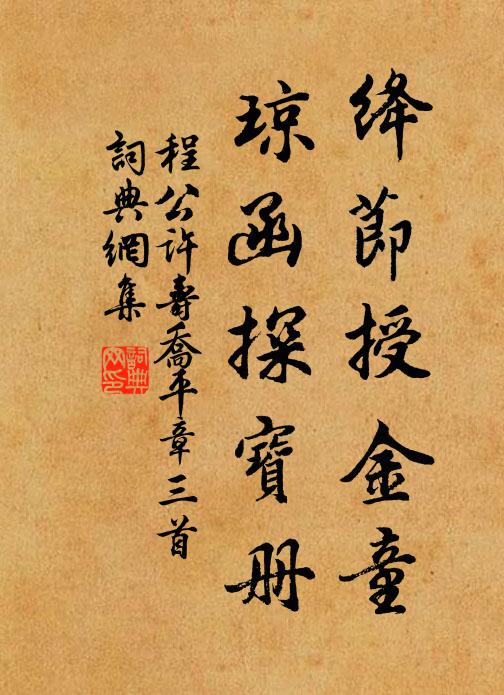 绛節授金童
琼函探寶册
程公許壽喬平章三首
詞典網集
詞典网印